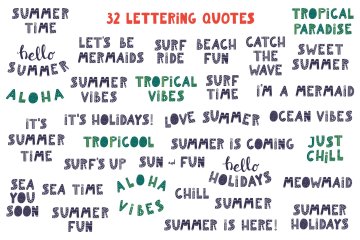 32 LETTERING QUOTES
SUMMER
TIME
TROPICAL
PARADISE
hello
SUMMER
LET'S BE
MERMAIDS
SURF
RIDE
BEACH
FUN
CATCH
THE
WAVE
SWEET
SUMMER
ALOHA
SUMMER
VIBES
TROPICAL
VIBES
SURF
TIME
I'M A MERMAID
IT'S
SUMMER
TIME
IT'S HOLIDAYS!
LOVE SUMMER
OCEAN VIBES
TROPICOOL
SUMMER IS COMING
JUST
CHILL
SURF'S UP
SUN and FUN
hello
HOLIDAYS
SEA
YOU
SOON
SEA TIME
ALOHA
VIBES
CHILL
MEOWMAID
SUMMER
FUN
SUMMER
SUMMER IS HERE!